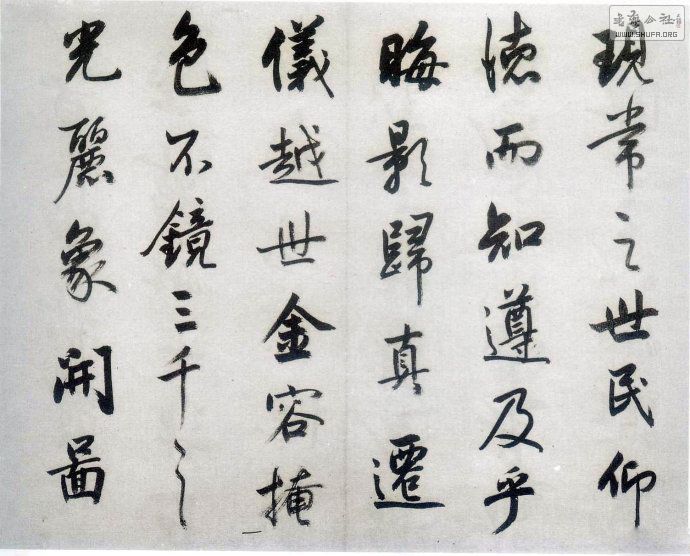 現常之世民仰
德而知遵及乎
晦影歸真遷
儀越世金容掩
色不鏡三千之
光麗象開啚
WWW.SHUFA.ORG